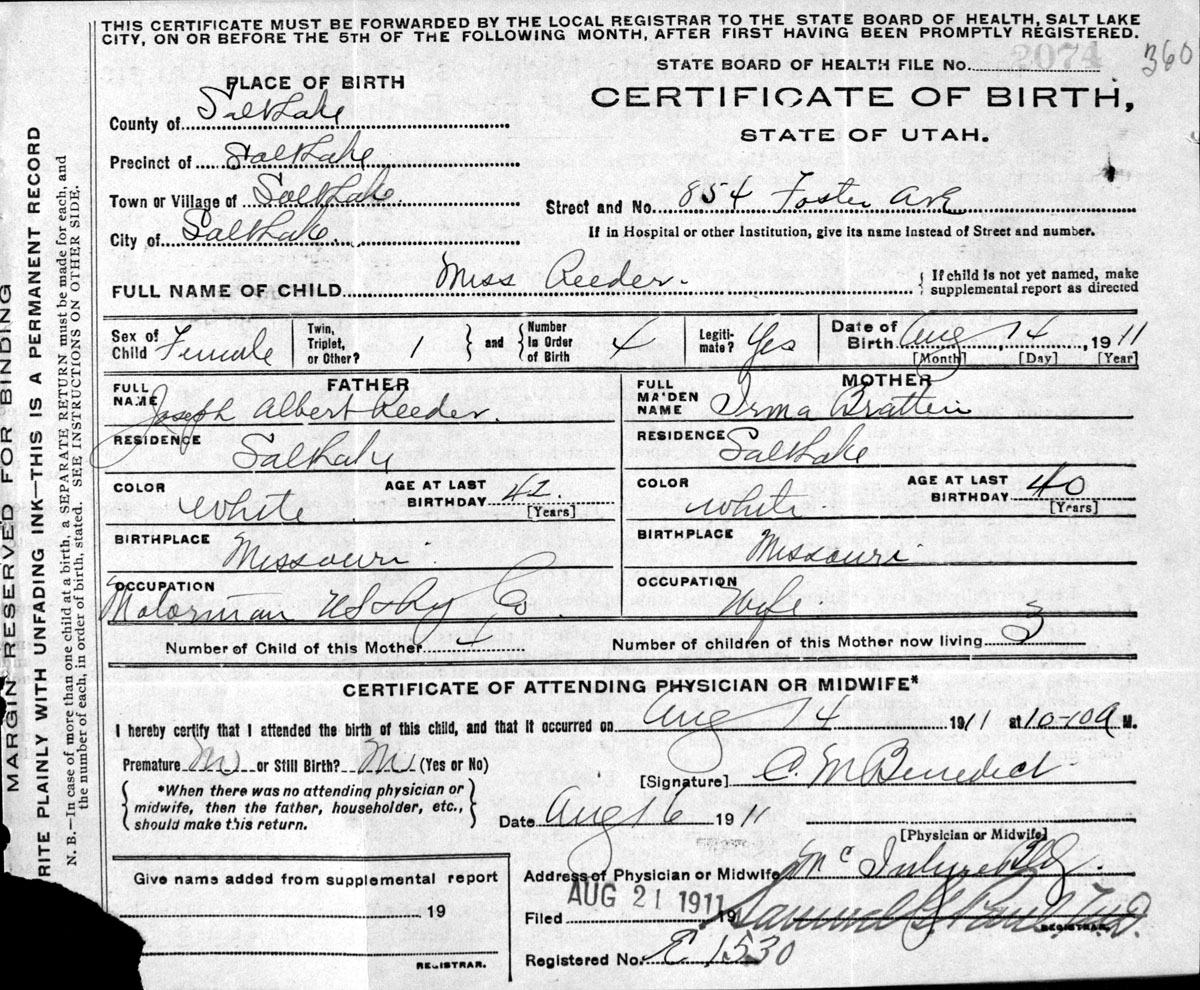 THIS CERTIFICATE MUST BE FORWARDED BY THE LOCAL REGISTRAR TO THE STATE BOARD OF HEALTH, SALT LAKE
CITY, ON OR BEFORE THE 5TH OF THE FOLLOWING MONTH, AFTER FIRST HAVING BEEN PROMPTLY REGISTERED.
STATE BOARD OF HEALTH FILE No. 2074 360
PLACE OF BIRTH
CERTIFICATE OF BIRTH,
STATE OF UTAH.
County of Salt Lake
Precinct of Salt Lake
Town or Village of Salt Lake
City of Salt Lake
Street and No. 854 Foster Ave
If in Hospital or other Institution, give its name instead of Street and number.
FULL NAME OF CHILD Miss Reeder.
If child is not yet named, make
supplemental report as directed
Sex of
Child Female
Twin,
Triplet,
or Other? 1
and
Number
in Order
of Birth 4
Legiti-
mate? Yes
Date of
Birth Aug 14, 1911
[Month] [Day] [Year]
FATHER
FULL
NAME Joseph Albert Reeder.
RESIDENCE Salt Lake
COLOR White
AGE AT LAST
BIRTHDAY 42.
[Years]
BIRTHPLACE Missouri.
OCCUPATION
Motorman U L & Ry Co
MOTHER
FULL
MAIDEN
NAME Irma Bratten
RESIDENCE Salt Lake
COLOR White
AGE AT LAST
BIRTHDAY 40
[Years]
BIRTHPLACE Missouri.
OCCUPATION
Wife.
Number of Child of this Mother 4
Number of children of this Mother now living 3
CERTIFICATE OF ATTENDING PHYSICIAN OR MIDWIFE*
I hereby certify that I attended the birth of this child, and that it occurred on Aug 14 1911 at 10-10 a M.
Premature or Still Birth? (Yes or No)
[Signature] C. M Benedict
*When there was no attending physician or
midwife, then the father, householder, etc.,
should make this return.
Date Aug 16 1911
[Physician or Midwife]
Address of Physician or Midwife Mc Intyre Bldg.
Filed AUG 21 1911 19
Samuel G. Paul M.D.
REGISTRAR.
Registered No. E 1530
Give name added from supplemental report
19
REGISTRAR.
MARGIN RESERVED FOR BINDING
RITE PLAINLY WITH UNFADING INK—THIS IS A PERMANENT RECORD
N. B.—In case of more than one child at a birth, a SEPARATE RETURN must be made for each, and
the number of each, in order of birth, stated. SEE INSTRUCTIONS ON OTHER SIDE.